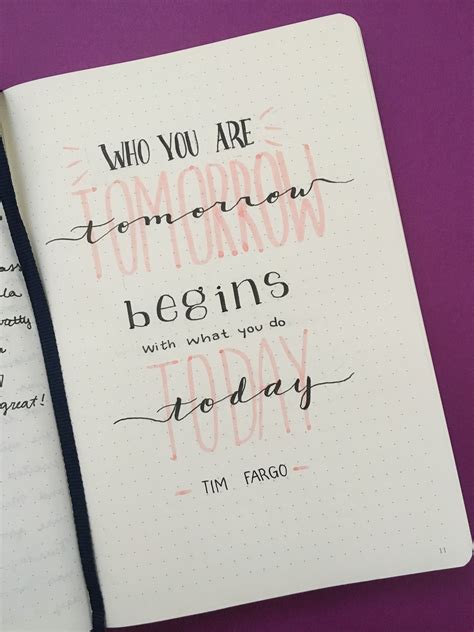 WHO YOU ARE
TOMORROW
tomorrow
begins
with what you do
TODAY
today
- TIM FARGO -
11
ass
la
great!